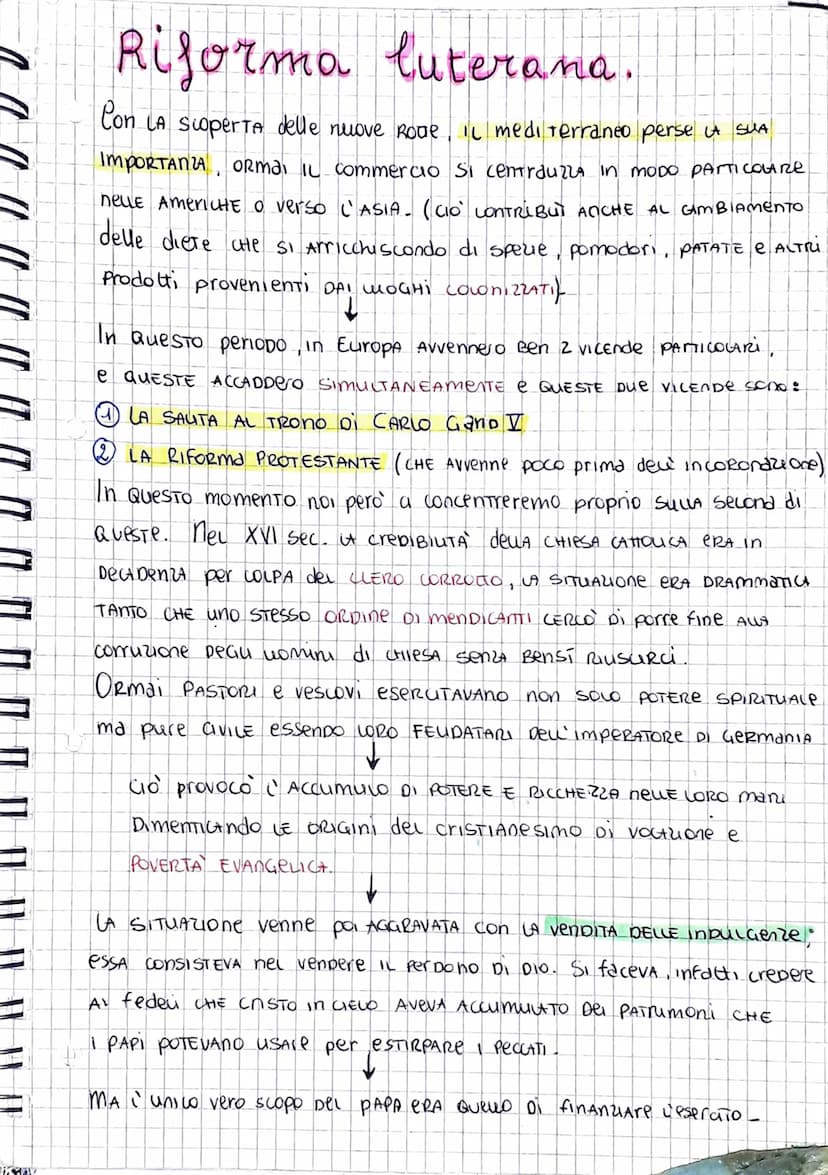 Riforma luterana.
Con LA scoperta delle nuove ROTTE, IL mediterraneo perse LA SUA
IMPORTANZA, ORMAI IL commercio si centralizza in modo PARTICOLARE
nelle Americhe o verso l'ASIA. (ciò contribuì ANCHE AL CAMBIAMENTO
delle diete che si arricchiscondo di spezie, pomodori, PATATE e ALTRI
Prodotti provenienti DAI luoghi colonizzati)
↓
In questo periodo, in Europa Avvennero Ben 2 vicende PARTICOLARI,
e queste accaddero simultaneamente e queste due vicende sono:
① LA SALITA AL TRONO DI CARLO Gano V
② LA RIFORMA PROTESTANTE (CHE Avvenne poco prima dell' incoronazione)
In questo momento noi però ci concentreremo proprio sulla second di
queste. Nel XVI sec. LA credibilità della CHIESA CATTOLICA ERA in
DECADENZA per COLPA del CLERO CORROTTO, LA SITUAZIONE ERA DRAMMATICA
TANTO CHE uno stesso ORDINE DI MENDICANTI CERCÒ DI porre fine ALLA
corruzione DEGLI uomini di chiesa senza Bensì riuscirci.
Ormai PASTORI e vescovi esercitavano non solo POTERE SPIRITUALE
ma pure civile essendo LORO FEUDATARI Dell'IMPERATORE DI GERMANIA
↓
Ciò provocò l'ACCUMULO DI POTERE E RICCHEZZA nelle LORO mani
Dimenticando LE ORIGINI del CRISTIANESIMO DI vocazione e
POVERTÀ EVANGELICA.
↓
LA SITUAZIONE venne poi AGGRAVATA con LA VENDITA DELLE INDULGENZE;
essa consisteva nel vendere IL PERDONO DI DIO. Si faceva, infatti credere
AI fedeli CHE CRISTO IN CIELO AVEVA ACCUMULATO DEI PATRIMONI CHE
I PAPI POTEVANO USARE per ESTIRPARE I PECCATI.
↓
MA l'unico vero scopo DEL PAPA ERA QUELLO DI FINANZIARE l'esercito.